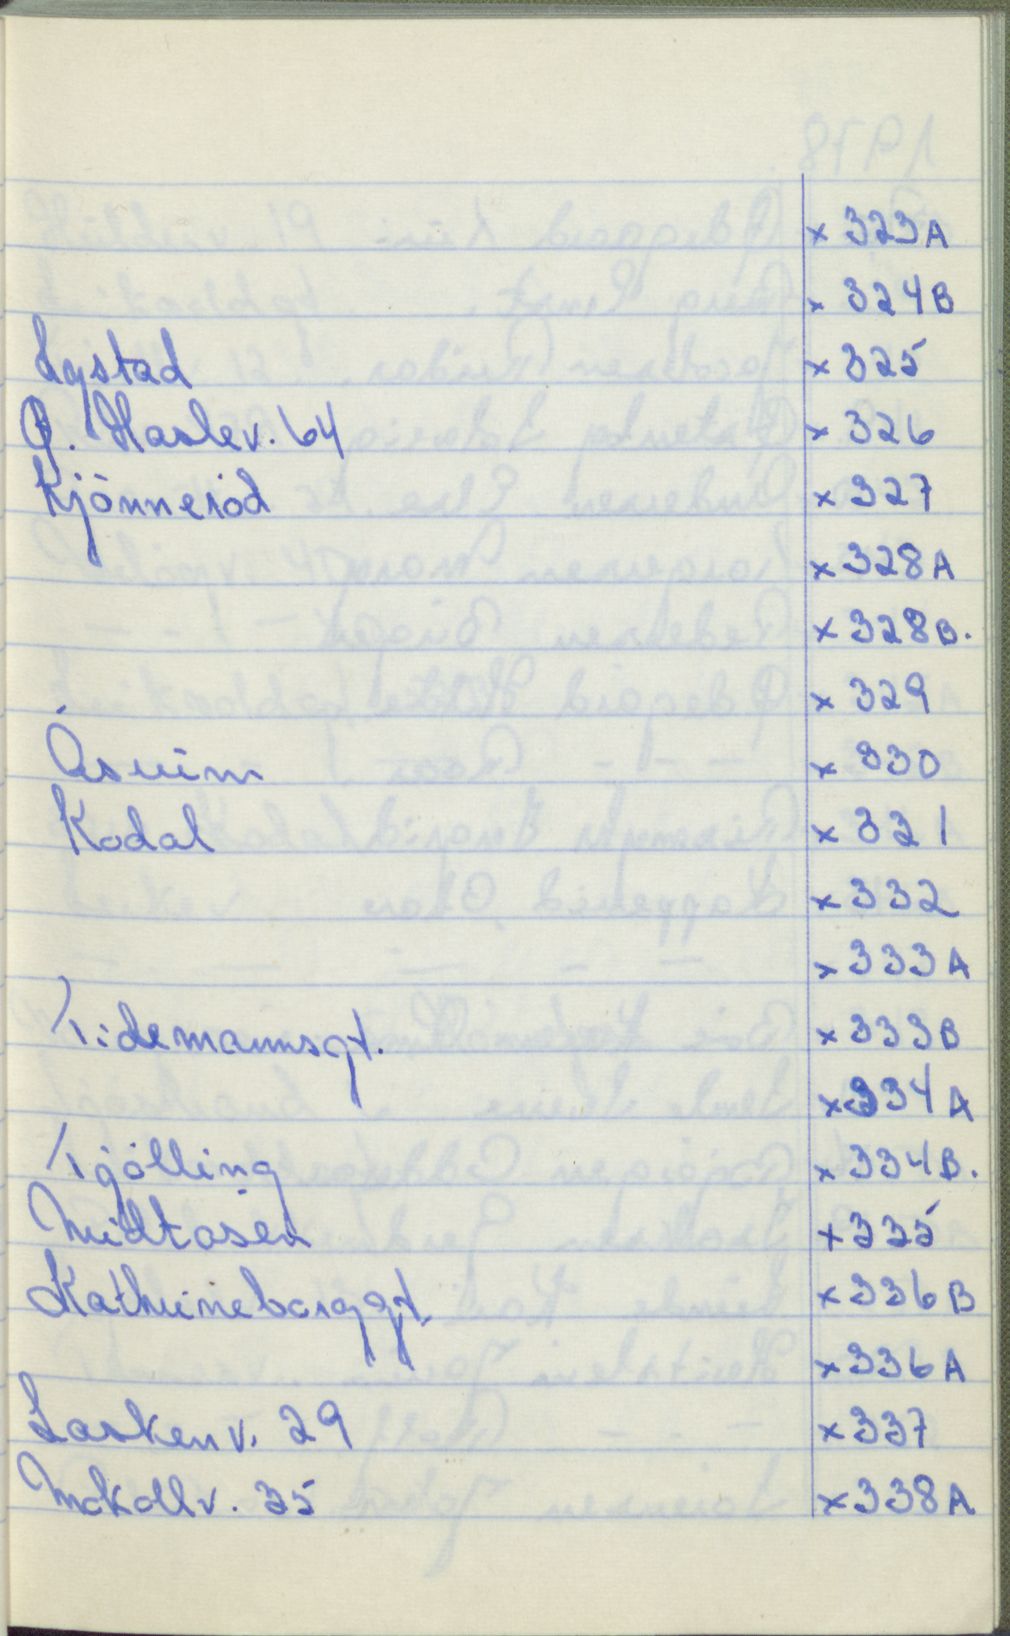 x 323A
x 324B
Lystad x 325
G. Haslev. 64 x 326
Kjönneröd x 327
x 328A
x 328B.
x 329
Åsveien x 330
Kodal x 321
x 332
x 333A
Tidemannsgt. x 333B
x 334A
Tjölling x 334B.
Midtåsen x 335
Kathrineborggt. x 336B
x 336A
Laskenv. 29 x 337
Mokollv. 35 x 338A